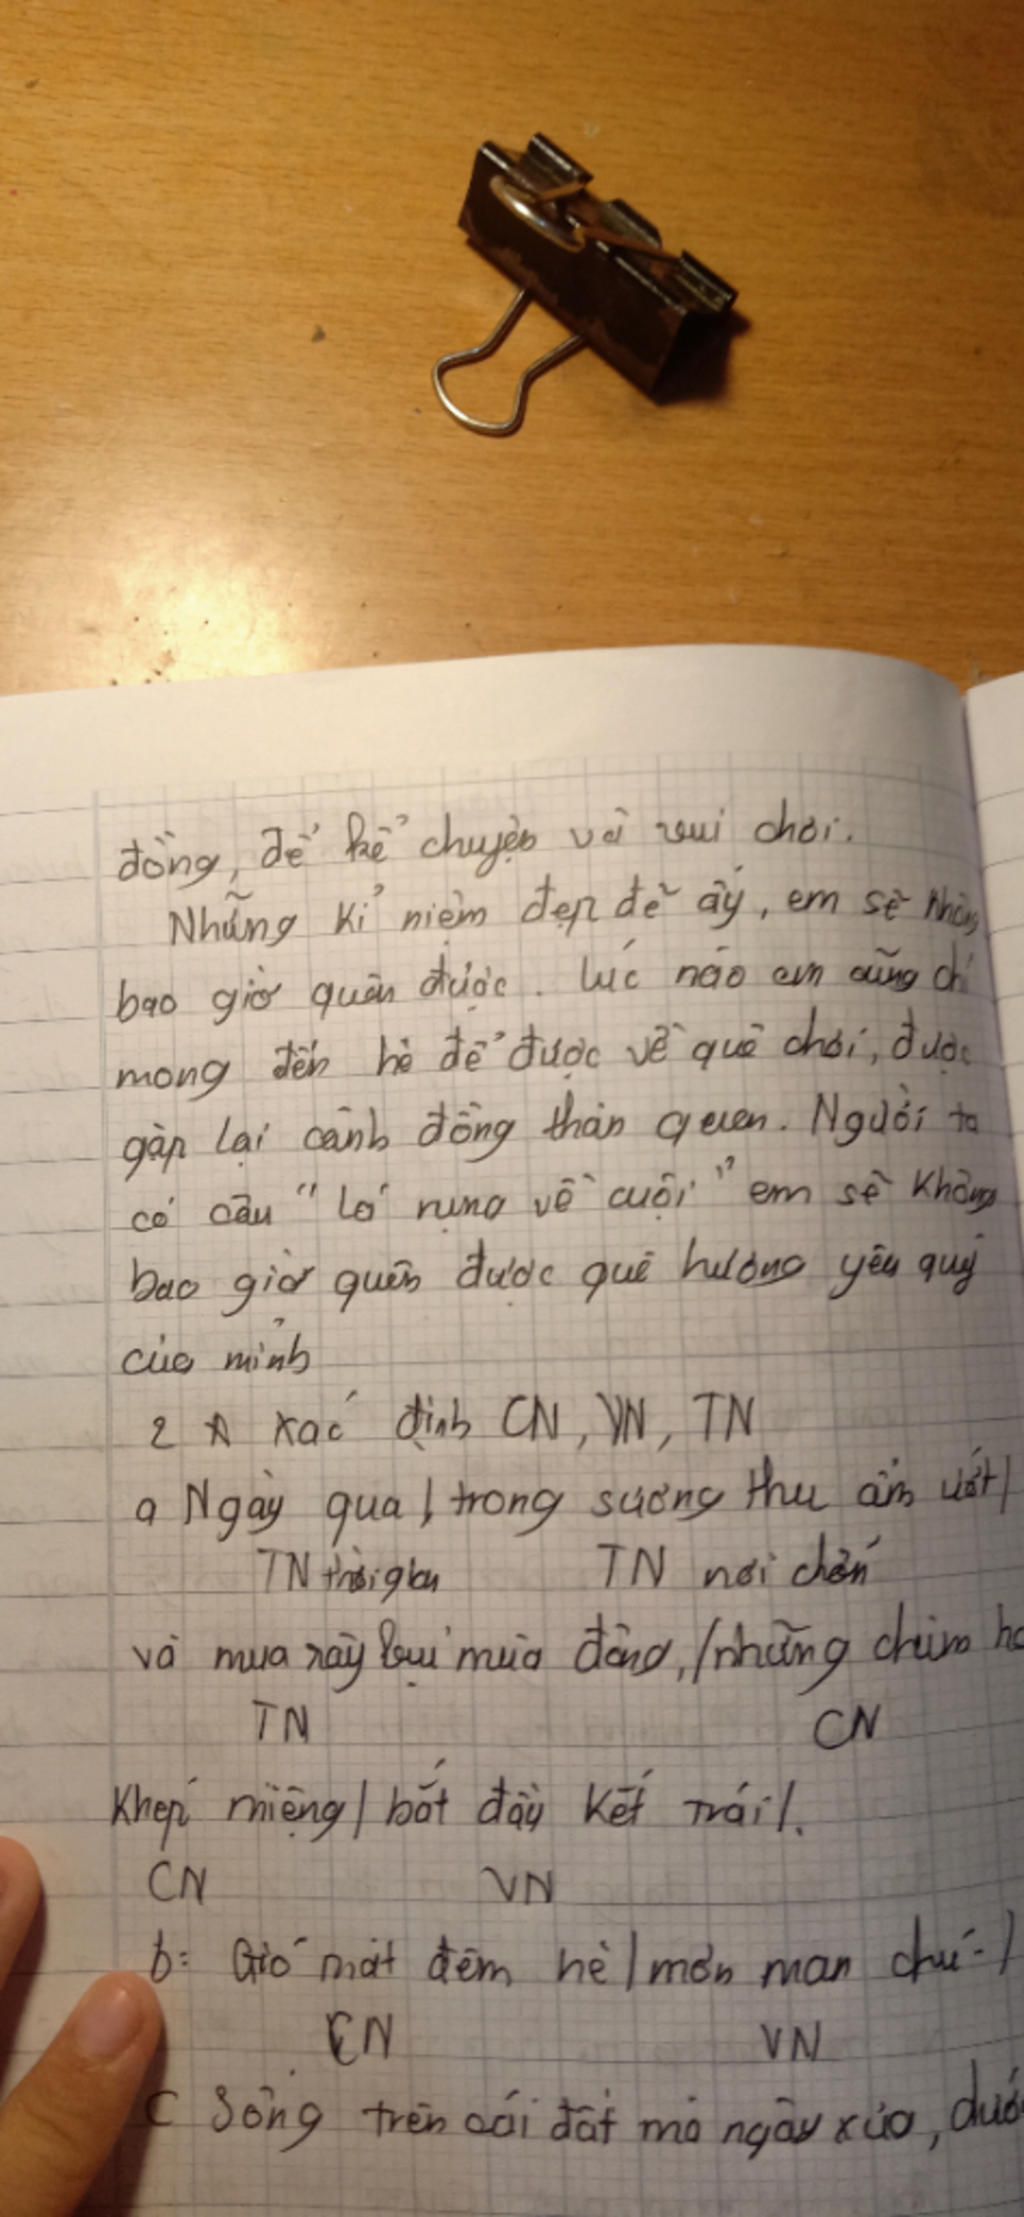 đồng, để kể chuyện và vui chơi.
Những kỉ niệm đẹp đẽ ấy, em sẽ không
bao giờ quên được. lúc nào em cũng chỉ
mong đến hè để được về quê chơi, được
gặp lại cánh đồng thân quen. Người ta
có câu "lá rụng về cuội" em sẽ không
bao giờ quên được quê hương yêu quý
của mình
2 A xác định CN, VN, TN
a Ngày qua / trong sương thu ẩm ướt /
TN thời gian TN nơi chốn
và mưa rây bụi mùa đông, / những chùm ho
TN CN
Khép miệng / bắt đầy kết trái /.
CN VN
b: Gió mát đêm hè / mơn man chú - /
CN VN
c Sống trên cái đất mà ngày xưa, dưới